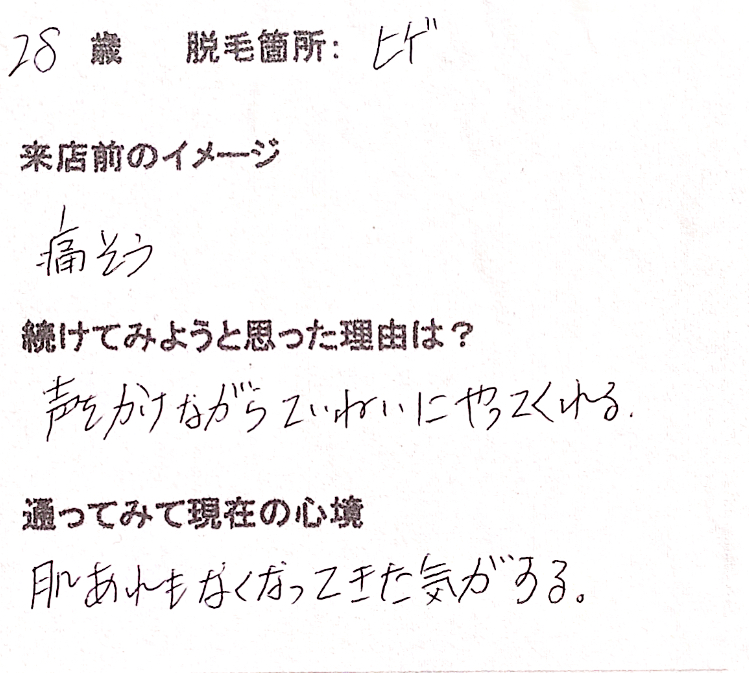 28 歳 脱毛箇所: ヒゲ
来店前のイメージ
痛そう
続けてみようと思った理由は？
声をかけながらていねいにやってくれる.
通ってみて現在の心境
肌あれもなくなってきた気がする。